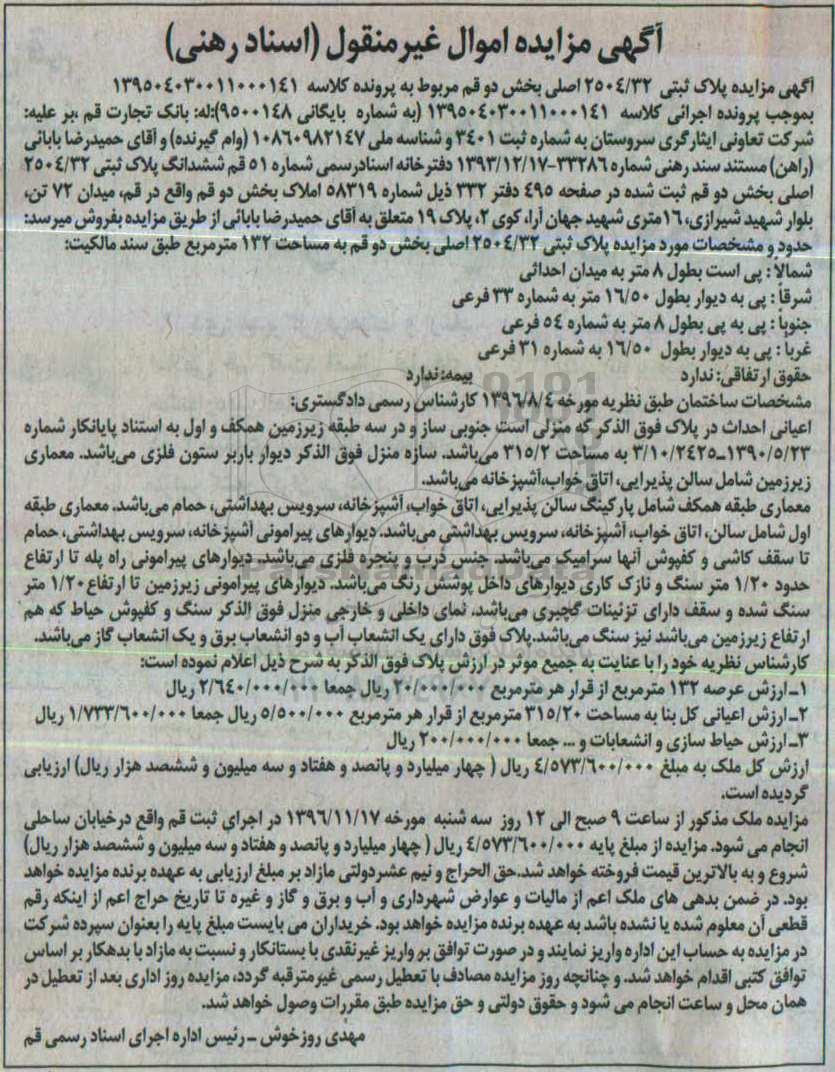 آگهی مزایده اموال غیرمنقول (اسناد رهنی)
آگهی مزایده پلاک ثبتی ۲۵۰۴/۳۲ اصلی بخش دو قم مربوط به پرونده کلاسه ۱۳۹۵۰۴۰۳۰۰۱۱۰۰۰۱۴۱
بموجب پرونده اجرائی کلاسه ۱۳۹۵۰۴۰۳۰۰۱۱۰۰۰۱۴۱ (به شماره بایگانی ۹۵۰۰۱۴۸):له: بانک تجارت قم ،بر علیه:
شرکت تعاونی ایثارگری سروستان به شماره ثبت ۳۴۰۱ و شناسه ملی ۱۰۸۶۰۹۸۲۱۴۷ (وام گیرنده) و آقای حمیدرضا بابائی
(راهن) مستند سند رهنی شماره ۳۳۲۸۶-۱۳۹۳/۱۲/۱۷ دفترخانه اسنادرسمی شماره ۵۱ قم ششدانگ پلاک ثبتی ۲۵۰۴/۳۲
اصلی بخش دو قم ثبت شده در صفحه ۴۹۵ دفتر ۳۳۲ ذیل شماره ۵۸۳۱۹ املاک بخش دو قم واقع در قم، میدان ۷۲ تن،
بلوار شهید شیرازی، ۱۶متری شهید جهان آرا، کوی ۲، پلاک ۱۹ متعلق به آقای حمیدرضا بابائی از طریق مزایده بفروش میرسد:
حدود و مشخصات مورد مزایده پلاک ثبتی ۲۵۰۴/۳۲ اصلی بخش دو قم به مساحت ۱۳۲ مترمربع طبق سند مالکیت:
شمالاً : پی است بطول ۸ متر به میدان احداثی
شرقاً : پی به دیوار بطول ۱۶/۵۰ متر به شماره ۳۳ فرعی
جنوباً : پی به پی بطول ۸ متر به شماره ۵۴ فرعی
غربا : پی به دیوار بطول ۱۶/۵۰ به شماره ۳۱ فرعی
حقوق ارتفاقی: ندارد بیمه: ندارد
مشخصات ساختمان طبق نظریه مورخه ۱۳۹۶/۸/۴ کارشناس رسمی دادگستری:
اعیانی احداث در پلاک فوق الذکر که منزلی است جنوبی ساز و در سه طبقه زیرزمین همکف و اول به استناد پایانکار شماره
۱۳۹۰/۵/۲۳ـ۳/۱۰/۲۴۲۵ به مساحت ۳۱۵/۲ می‌باشد. سازه منزل فوق الذکر دیوار باربر ستون فلزی می‌باشد. معماری
زیرزمین شامل سالن پذیرایی، اتاق خواب،آشپزخانه می‌باشد.
معماری طبقه همکف شامل پارکینگ سالن پذیرایی، اتاق خواب، آشپزخانه، سرویس بهداشتی، حمام می‌باشد. معماری طبقه
اول شامل سالن، اتاق خواب، آشپزخانه، سرویس بهداشتی می‌باشد. دیوارهای پیرامونی آشپزخانه، سرویس بهداشتی، حمام
تا سقف کاشی و کفپوش آنها سرامیک می‌باشد. جنس دُرب و پنجره فلزی می‌باشد. دیوارهای پیرامونی راه پله تا ارتفاع
حدود ۱/۲۰ متر سنگ و نازک کاری دیوارهای داخل پوشش رنگ می‌باشد. دیوارهای پیرامونی زیرزمین تا ارتفاع ۱/۲۰ متر
سنگ شده و سقف دارای تزئینات گچبری می‌باشد. نمای داخلی و خارجی منزل فوق الذکر سنگ و کفپوش حیاط که هم
ارتفاع زیرزمین می‌باشد نیز سنگ می‌باشد.پلاک فوق دارای یک انشعاب آب و دو انشعاب برق و یک انشعاب گاز می‌باشد.
کارشناس نظریه خود را با عنایت به جمیع موثر در ارزش پلاک فوق الذکر به شرح ذیل اعلام نموده است:
۱ـ ارزش عرصه ۱۳۲ مترمربع از قرار هر مترمربع ۲۰/۰۰۰/۰۰۰ ریال جمعا ۲/۶۴۰/۰۰۰/۰۰۰ ریال
۲ـ ارزش اعیانی کل بنا به مساحت ۳۱۵/۲۰ مترمربع از قرار هر مترمربع ۵/۵۰۰/۰۰۰ ریال جمعا ۱/۷۳۳/۶۰۰/۰۰۰ ریال
۳ـ ارزش حیاط سازی و انشعابات و ... جمعا ۲۰۰/۰۰۰/۰۰۰ ریال
ارزش کل ملک به مبلغ ۴/۵۷۳/۶۰۰/۰۰۰ ریال ( چهار میلیارد و پانصد و هفتاد و سه میلیون و ششصد هزار ریال) ارزیابی
گردیده است.
مزایده ملک مذکور از ساعت ۹ صبح الی ۱۲ روز سه شنبه مورخه ۱۳۹۶/۱۱/۱۷ در اجرای ثبت قم واقع درخیابان ساحلی
انجام می شود. مزایده از مبلغ پایه ۴/۵۷۳/۶۰۰/۰۰۰ ریال ( چهار میلیارد و پانصد و هفتاد و سه میلیون و ششصد هزار ریال)
شروع و به بالاترین قیمت فروخته خواهد شد.حق الحراج و نیم عشردولتی مازاد بر مبلغ ارزیابی به عهده برنده مزایده خواهد
بود. در ضمن بدهی های ملک اعم از مالیات و عوارض شهرداری و آب و برق و گاز و غیره تا تاریخ حراج اعم از اینکه رقم
قطعی آن معلوم شده یا نشده باشد به عهده برنده مزایده خواهد بود. خریداران می بایست مبلغ پایه را بعنوان سپرده شرکت
در مزایده به حساب این اداره واریز نمایند و در صورت توافق بر واریز غیرنقدی با بستانکار و نسبت به مازاد با بدهکار بر اساس
توافق کتبی اقدام خواهد شد. و چنانچه روز مزایده مصادف با تعطیل رسمی غیرمترقبه گردد، مزایده روز اداری بعد از تعطیل در
همان محل و ساعت انجام می شود و حقوق دولتی و حق مزایده طبق مقررات وصول خواهد شد.
مهدی روزخوش ـ رئیس اداره اجرای اسناد رسمی قم